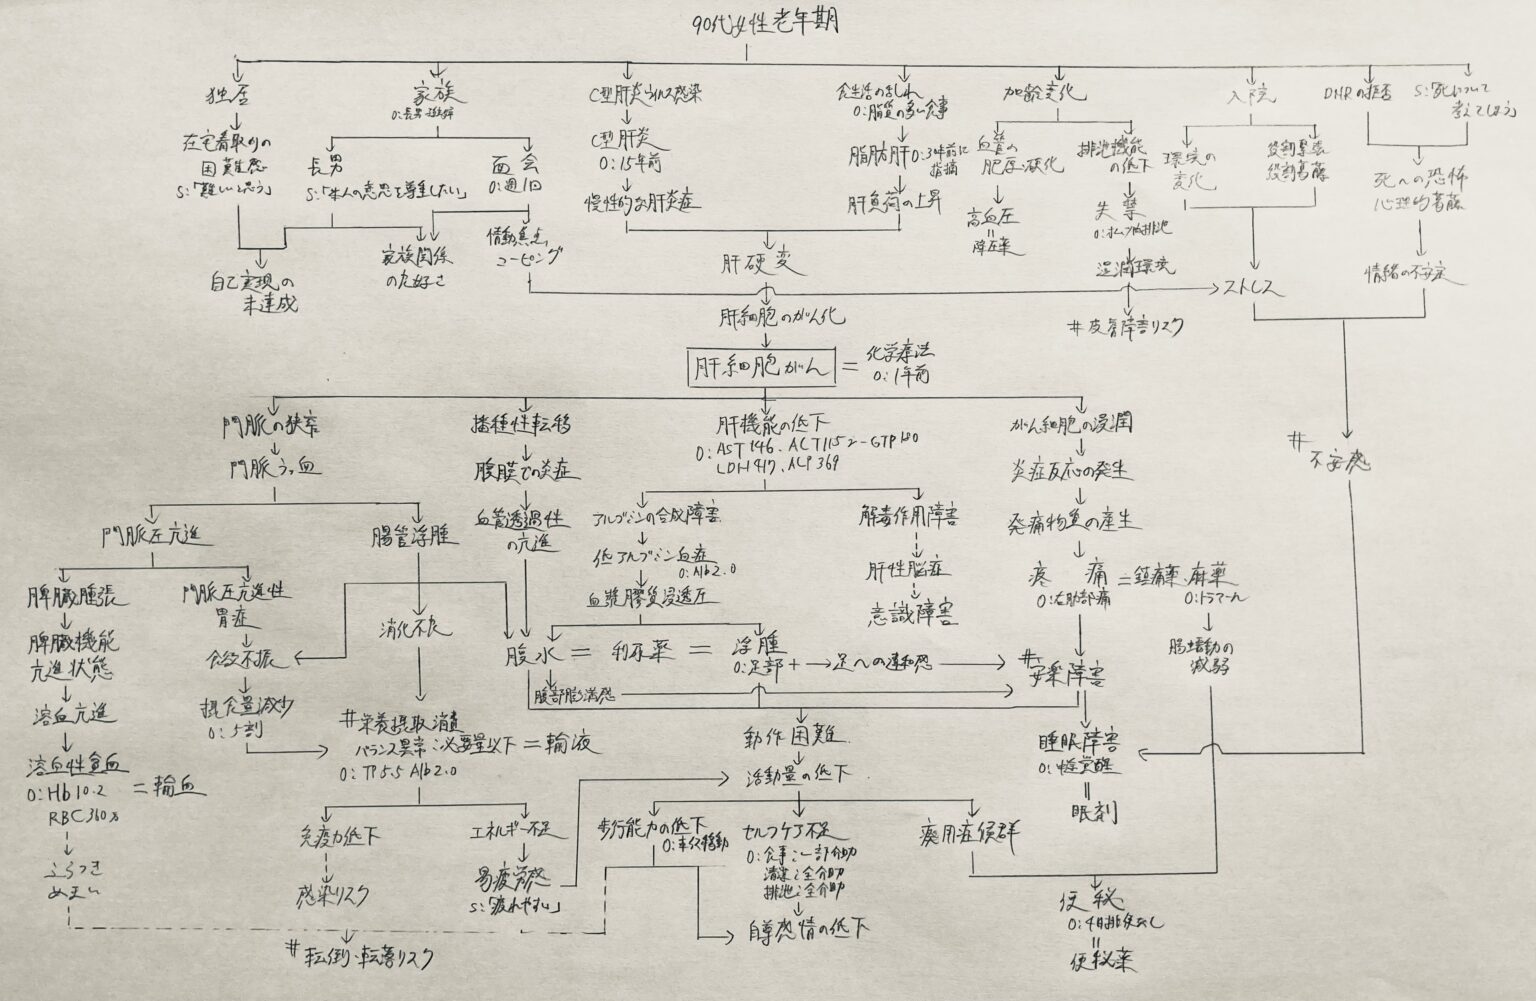 90代女性老年期
独居
在宅看取りの
困難感
S:「難しいと思う」
家族
長男
S:「本人の意思を尊重したい」
面会
O:週1回
自己実現の
未達成
家族関係
の良好さ
情動焦点
コーピング
C型肝炎ウイルス感染
C型肝炎
O:15年前
慢性的な肝炎症
食生活の乱れ
O:脂質の多い食事
脂肪肝 O:3年前に
指摘
肝負荷の上昇
肝硬変
肝細胞のがん化
肝細胞がん
=
化学療法
O:1年前
加齢変化
血管の
肥厚・硬化
高血圧
=
降圧薬
排泄機能
の低下
失禁
O:オムツ内排泄
湿潤環境
#皮膚障害リスク
入院
環境の
変化
役割葛藤
ストレス
DNRの拒否
S:「死について
考えてしまう」
死への恐怖
心理的葛藤
情緒の不安定
#
不安感
門脈の狭窄
門脈うっ血
門脈圧亢進
脾臓腫張
脾臓機能
亢進状態
溶血亢進
溶血性貧血
O:Hb10.2
RBC360万
=輸血
ふらつき
めまい
門脈圧亢進性
胃症
食欲不振
摂食量減少
O:5割
腸管浮腫
消化不良
#栄養摂取消費
バランス異常:必要量以下=輸液
O:TP5.5 Alb2.0
免疫力低下
感染リスク
エネルギー不足
易疲労感
S:「疲れやすい」
#転倒・転落リスク
播種性転移
腹膜での炎症
血管透過性
の亢進
腹水=利尿薬=浮腫
O:足部+→足への違和感
腹部膨満感
肝機能の低下
O:AST146、ALT115、γ-GTP180
LDH417、ALP369
アルブミンの合成障害
低アルブミン血症
O:Alb2.0
血漿膠質浸透圧
解毒作用障害
肝性脳症
意識障害
がん細胞の浸潤
炎症反応の発生
発痛物質の産生
疼痛=鎮痛薬・麻薬
O:右肋部痛
O:トラマール
腸蠕動の
減弱
#
安楽障害
睡眠障害
=
眠剤
動作困難
活動量の低下
歩行能力の低下
O:車イス移動
セルフケア不足
O:食事:一部介助
清潔:全介助
排泄:全介助
自尊感情の低下
廃用症候群
便秘
O:4日排便なし
=
便秘薬